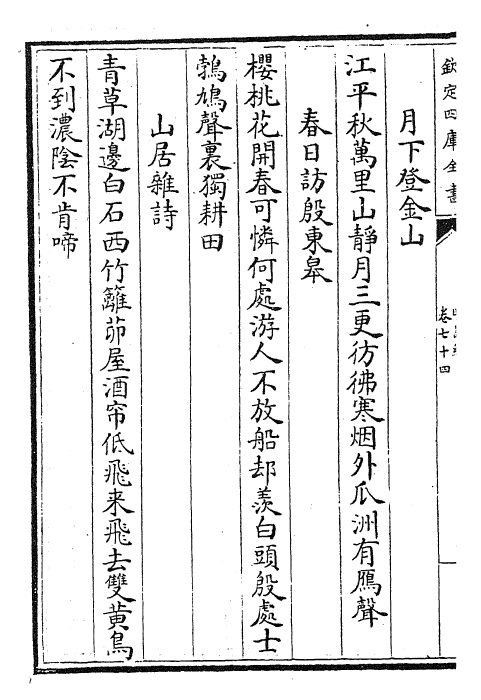 欽定四庫全書
卷七十四
月下登金山
江平秋萬里山靜月三更彷彿寒烟外瓜洲有鴈聲
春日訪殷東皋
櫻桃花開春可憐何處游人不放船却羨白頭殷處士
鵓鳩聲裏獨耕田
山居雜詩
青草湖邊白石西竹籬茆屋酒帘低飛来飛去雙黄鳥
不到濃陰不肯啼